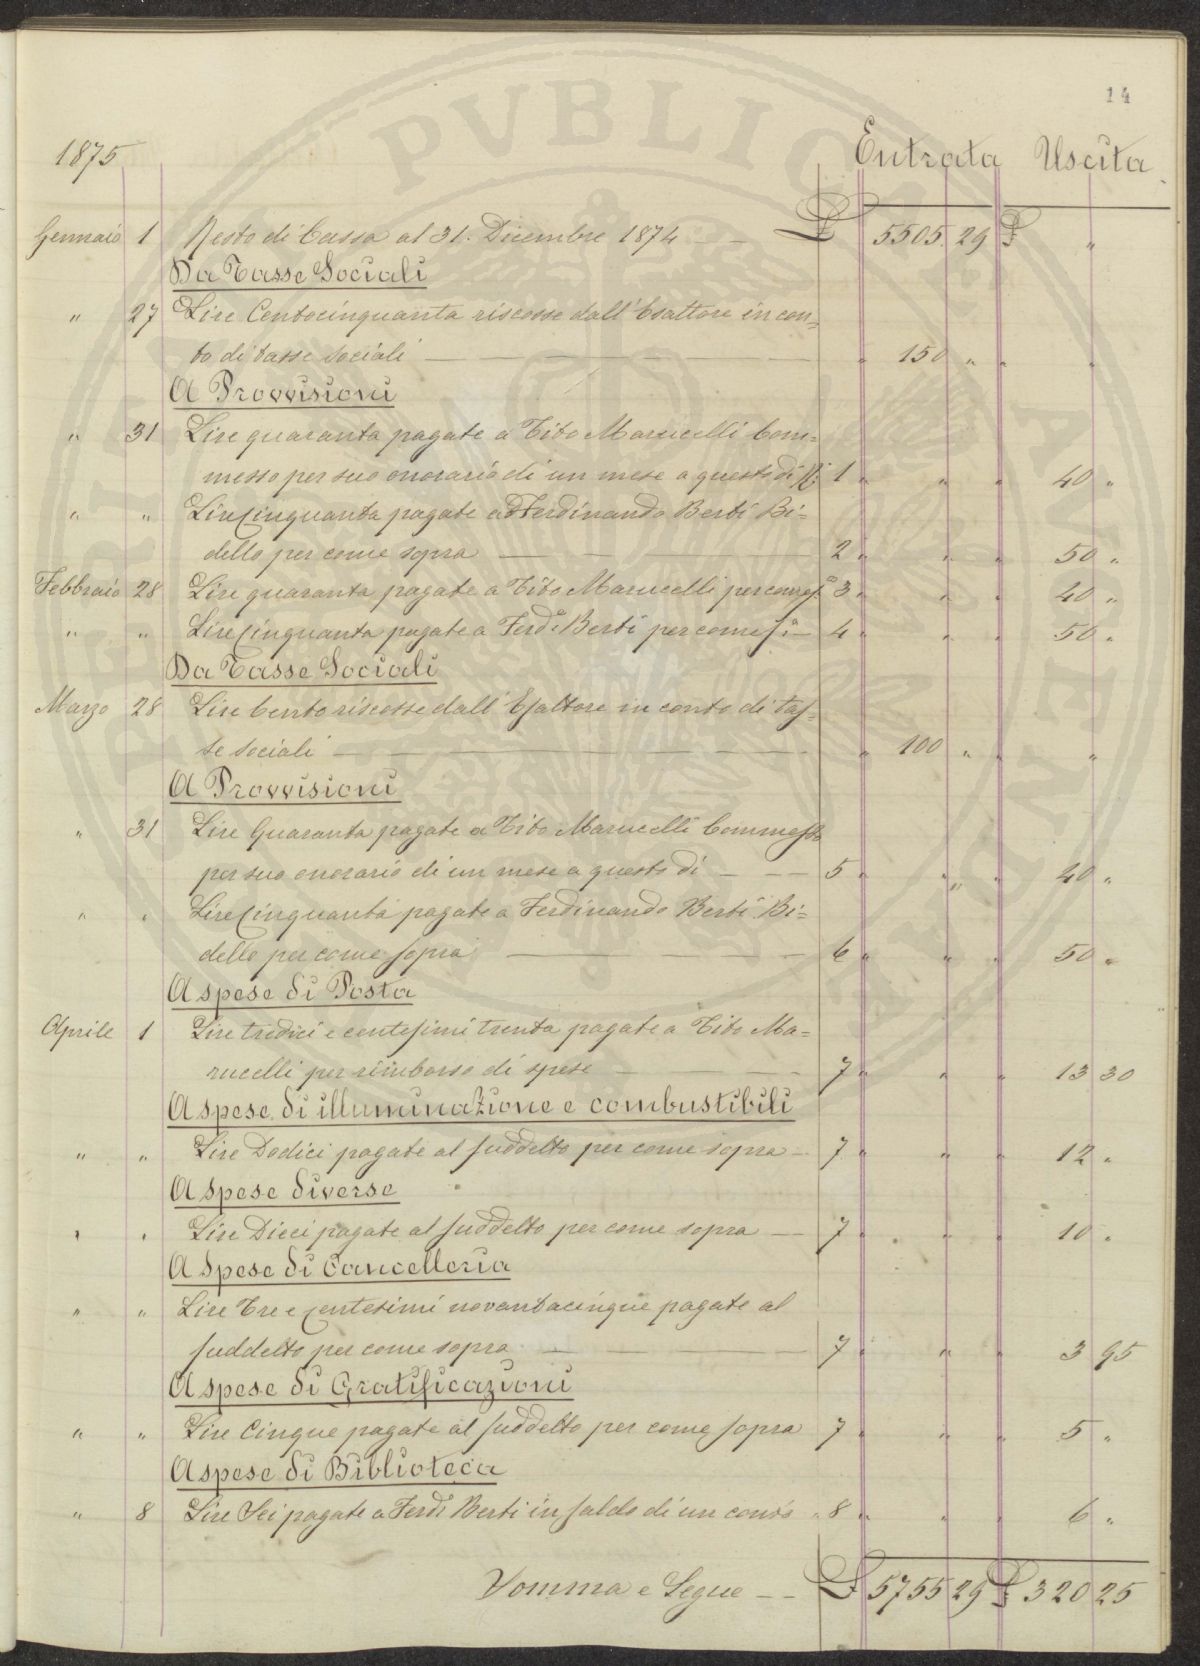 14
1875 Entrata Uscita
Gennaio 1 Resto di Cassa al 31. Dicembre 1874 — — £ 5505. 29 £ "
Da Tasse Sociali
" 27 Lire Centocinquanta riscosse dall'Esattore in con=
to di tasse sociali — — — " 150 " " "
A Provvisioni
" 31 Lire quaranta pagate a Tito Marucelli Com=
messo per suo onorario di un mese a questo dì 1 " " " 40 "
" " Lire Cinquanta pagate a Ferdinando Berti Bi=
dello per come sopra — — — 2 " " " 50 "
Febbraio 28 Lire quaranta pagate a Tito Marucelli per come s.ª 3 " " " 40 "
" " Lire Cinquanta pagate a Ferd.º Berti per come s.ª — 4 " " " 50 "
Da Tasse Sociali
Marzo 28 Lire Cento riscosse dall'Esattore in conto di tas=
se sociali — — — " 100 " " "
A Provvisioni
" 31 Lire Quaranta pagate a Tito Marucelli Commesso
per suo onorario di un mese a questo dì — — — 5 " " " 40 "
" " Lire Cinquanta pagate a Ferdinando Berti Bi=
dello per come sopra — — — 6 " " " 50 "
A spese di Posta
Aprile 1 Lire tredici e centesimi trenta pagate a Tito Ma=
rucelli per rimborso di spese — — — 7 " " " 13 30
A spese di illuminazione e combustibili
" " Lire Dodici pagate al suddetto per come sopra — 7 " " " 12 "
A spese diverse
" " Lire Dieci pagate al suddetto per come sopra — 7 " " " 10 "
A spese di Cancelleria
" " Lire Tre e Centesimi novantacinque pagate al
suddetto per come sopra — — — 7 " " " 3 95
A spese di Gratificazioni
" " Lire Cinque pagate al suddetto per come sopra 7 " " " 5 "
A spese di Biblioteca
" 8 Lire Sei pagate a Ferd.º Berti in saldo di un conto " 8 " " " 6 "
Somma e Segue — — £ 5755 29 £ 320 25